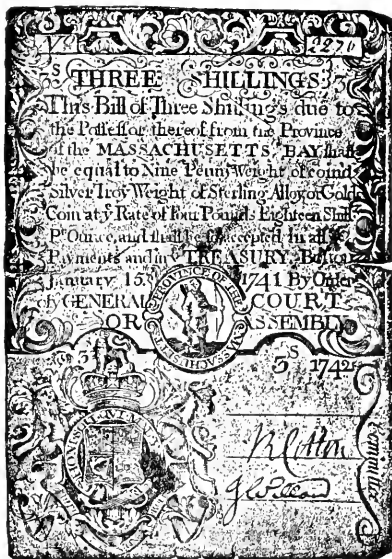 3S THREE SHILLINGS
This Bill of Three Shillings due to
the Possessor thereof from the Province
of the MASSACHUSETTS BAY shall
be equal to Nine Penny weight of coind
Silver Troy Weight of Sterling Alloy or Gold
Coin at yͤ Rate of Four Pounds Eighteen Shills
Pr Ounce, and shall be accepted in all
Payments and in yͤ TREASURY. Boston
January 15. 1741 By Order
of GENERAL COURT
OR ASSEMBLY
PROVINCE OF THE MASSACHUSETTS
3 3S 1742
HONI SOIT QUI MAL Y PENSE
R Cotton
Committee